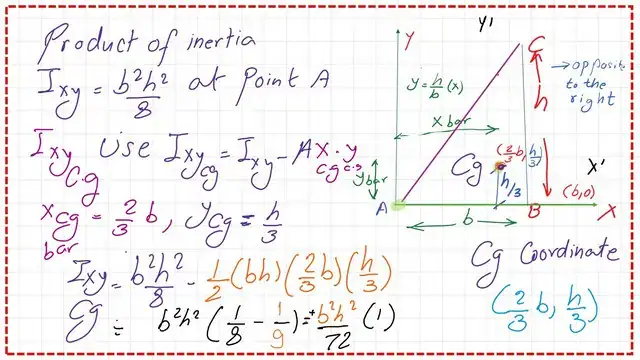 Product of inertia
Ixy = b²h²/8 at point A
Ixy c.g use Ixy cg = Ixy - A x cg · y c.g
x cg bar = 2/3 b, y cg = h/3
Ixy cg = b²h²/8 - 1/2 (bh) (2/3 b) (h/3)
= b²h² (1/8 - 1/9) = + b²h²/72 (1)
Y
Y'
C
y = h/b (x)
→ opposit to the right
h
x bar
(2/3 b, h/3)
Cg
y bar
h/3
X'
(b,0)
A
b
B
X
Cg Coordinate
(2/3 b, h/3)